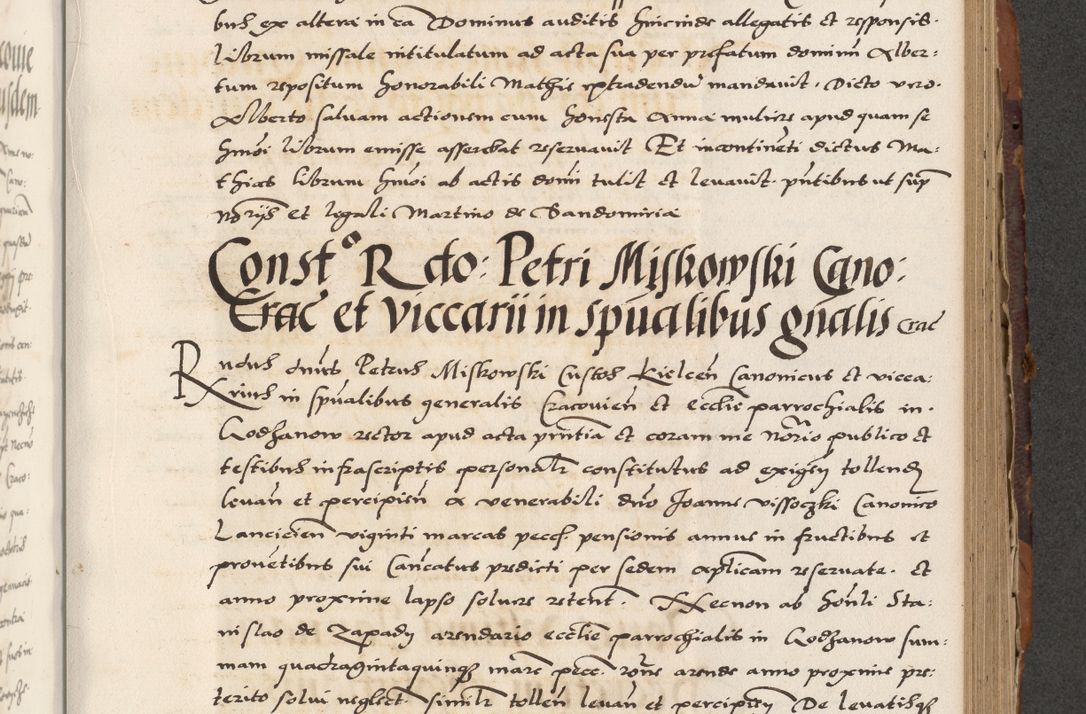 bus ex altera in ea Dominus auditis hincinde allegatis et responsis.
Librum missale intitulatum ad acta sua per prefatum dominum Alber:
tum repositum honorabili Mathie extradendu mandauit. Dicto vero.
Alberto saluam actionem cum honesta Anna muliere apud quam se
hmoi librum emisse asserebat reseruauit Et incontineti dictus Ma:
thias librum hmoi ab actis domi tulit et leuauit. pntibus ut sup
Norijs et legali Martino de Sandomiria
Constᵒ R do: Petri Miskowski Cano:
Crac et viccarii in spualibus gnalis Crac
Rndus dnus Petrus Miskowski Custos Kielcen Canonicus et vicca:
rius in spualibus generalis Cracouien et ecclie parrochialis in.
Rodzanow rector apud acta pntia et coram me Norio publico et
testibus infrascriptis personalr constitutus ad exigen tollend
leuan et percipien a venerabili dno Joanne vissoczki Canonico
Lancicien viginti marcas pecc pensionis annue in fructibus et
prouetibus sui Cancatus predicti per sedem aplicam reseruate. et
anno proxime lapso soluere retent. Necnon ab honli Sta:
nislao de Zapady arendario ecclie parrochialis in Rodzanow sum:
mam quadragintaquinq marc pecc rone arende anno proxime pre:
terito solui neglect. similr tollen leuan et percipien De leuatisq